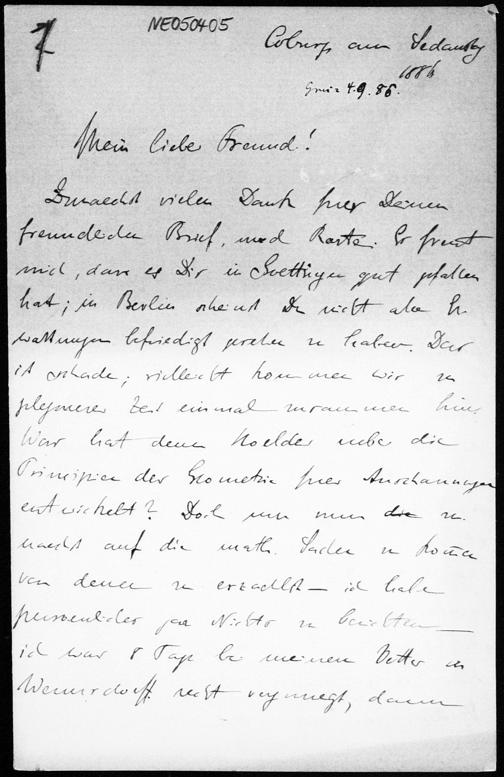 7
NE050405
Coburg am Sedanstag
1886
4.9.86.
Mein lieber Freund!
Zunaechst vielen Dank fuer Deinen
freundlichen Brief, und Karte. Es freut
mich, dass es Dir in Goettingen gut gefallen
hat; in Berlin scheinst Du nicht alle Er
wartungen befriedigt gesehen zu haben. Das
ist schade; vielleicht kommen wir zu
gelegenerer Zeit einmal zusammen hin.
Was hat denn Hoelder ueber die
Principien der Geometrie fuer Anschauungen
entwickelt? Doch um nun die zu
naechst auf die math. Sachen zu kommen
von denen Du erzaehlst — ich habe
persoenlicher gar Nichts zu berichten —
ich war 8 Tage bei meinem Vetter in
Wernsdorff recht vergnuegt, dann